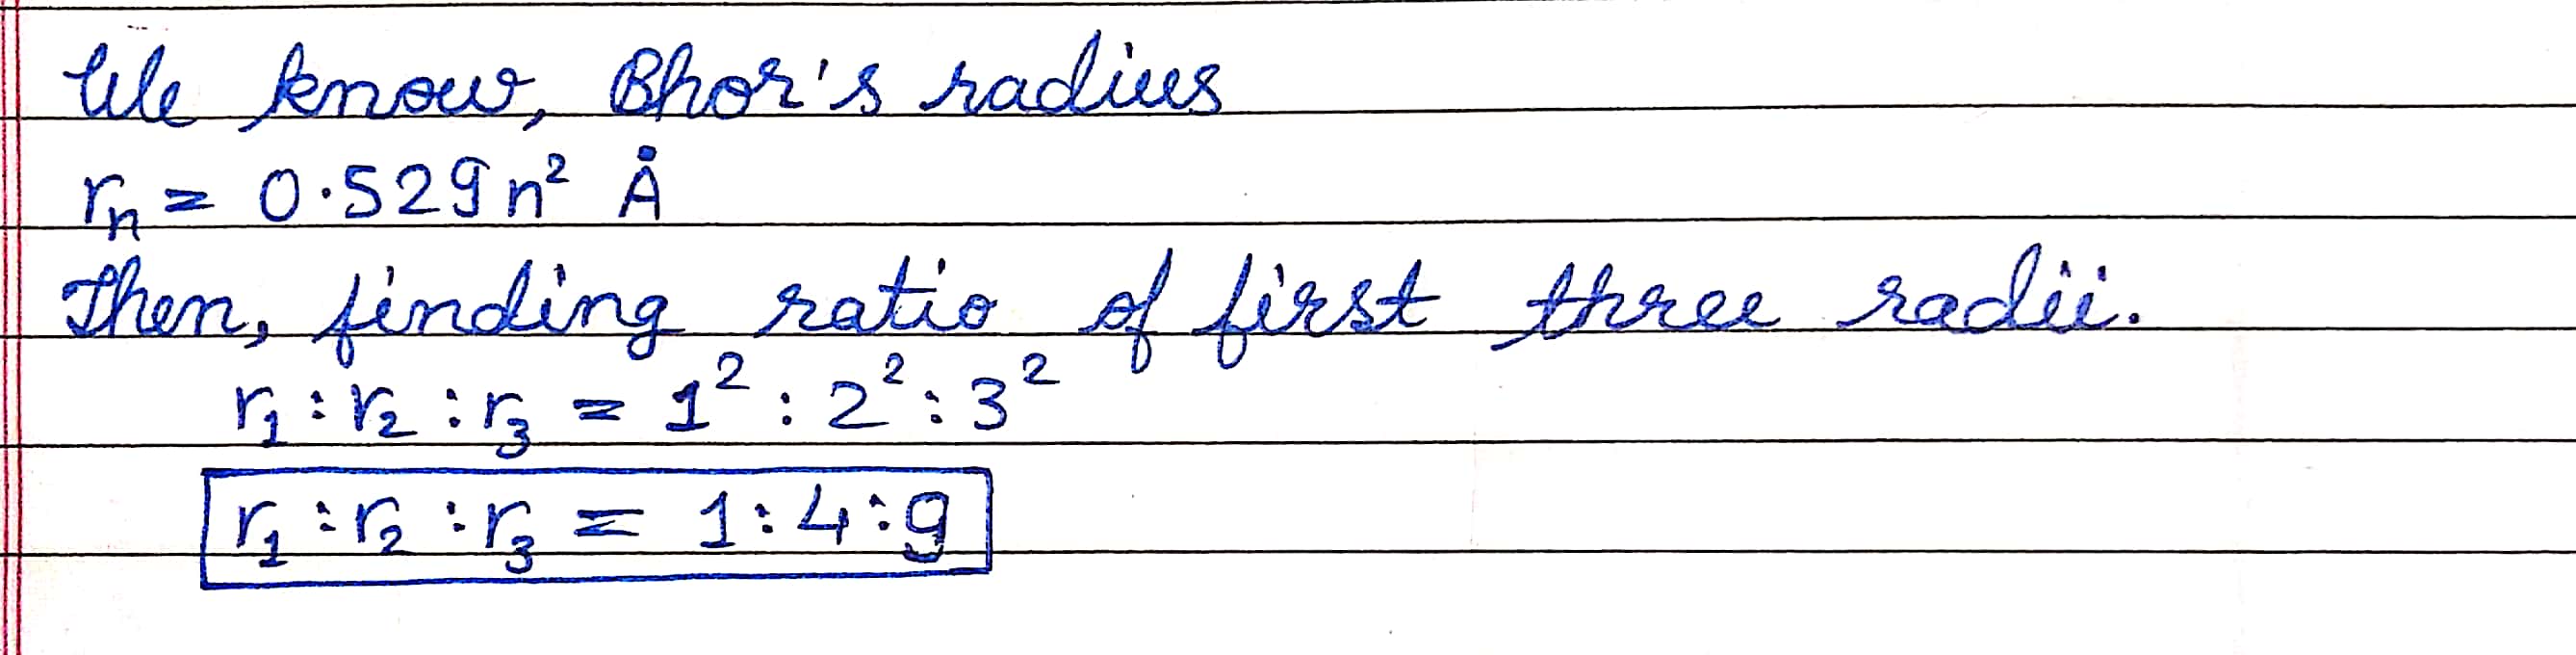 We know, Bhor's radius
rₙ = 0.529n² Å
Then, finding ratio of first three radii.
r₁ : r₂ : r₃ = 1² : 2² : 3²
r₁ : r₂ : r₃ = 1 : 4 : 9